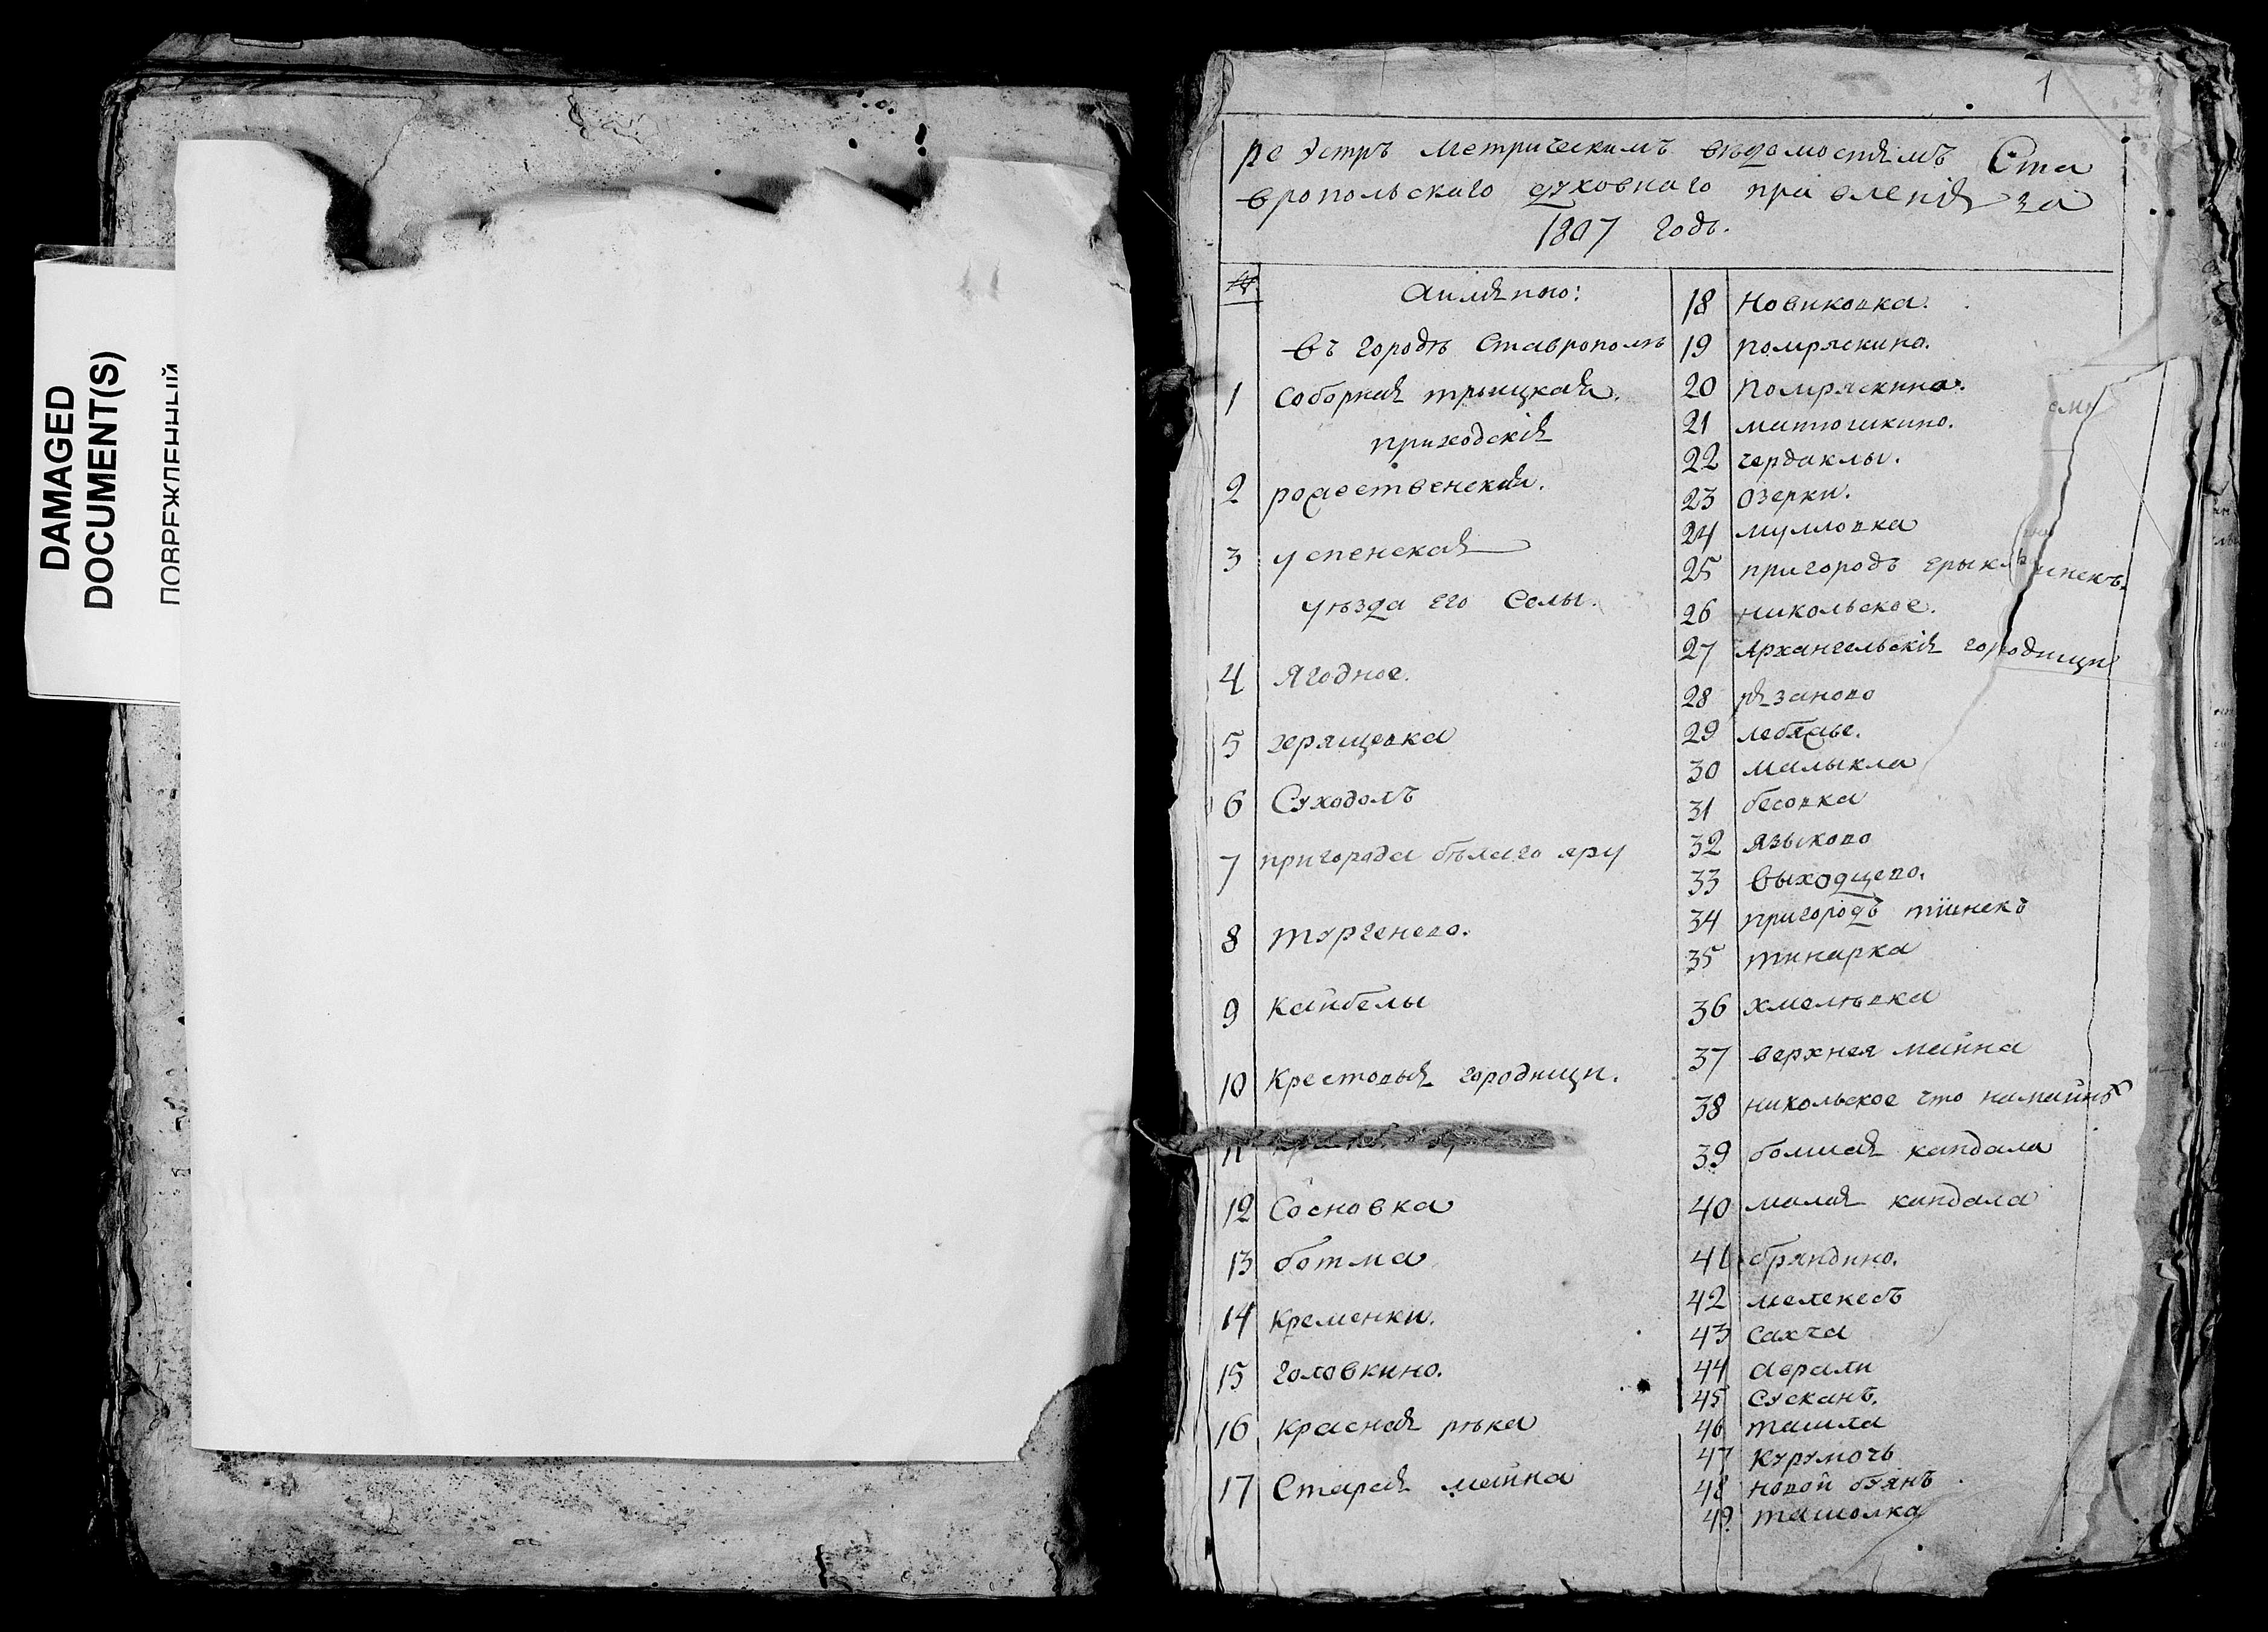 DAMAGED
DOCUMENT(S)
ПОВРЕЖДЕННЫЙ
1
реэстръ метрическимъ вѣдомостямъ Ста
вропольскаго духовнаго правленія за
1807 годъ.
№
аимянно:
въ городѣ Ставрополѣ
1 Соборная троицкая.
приходскія
2 рождественская.
3 успенская
уѣзда его Селы.
4 Ягодное.
5 хрящевка
6 Суходолъ
7 пригорода бѣлаго яру
8 тургенево.
9 кайбелы
10 Крестовыя городищи.
11
12 Сосновка
13 ботма
14 Кременки.
15 головкино.
16 красная рѣка
17 Старая майна
18 Новиковка.
19 помряскино.
20 помряскино.
21 матюшкино.
22 чердаклы.
23 Озерки.
24 мулловка
25 пригородъ ерыклинскъ.
26 никольское.
27 Архангельскія городищи
28 рязаново
29 лебяжье.
30 малыкла
31 бесовка
32 языково
33 выходцево.
34 пригородъ тіинскъ
35 тинарка
36 хмелѣвка
37 верхняя майна
38 никольское что намайнѣ
39 болшая кандала
40 малая кандала
41 бряндино.
42 мелекесъ
43 Сахча
44 аврали
45 Сусканъ.
46 ташла
47 курумочь
48 новой буянъ
49 ташолка